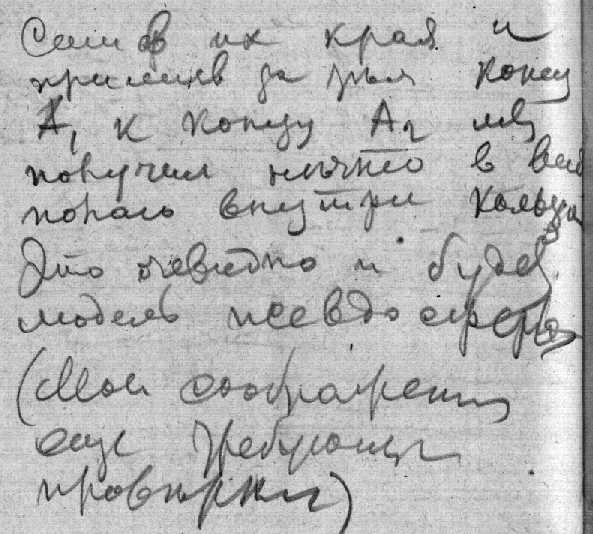 их края и
за тем конец
A₁ к концу A₂ мы
получим нечто в виде
полого внутри кольца
Это очевидно и будет
модель псевдосферы
(Мои соображения
еще требуют
проверки)